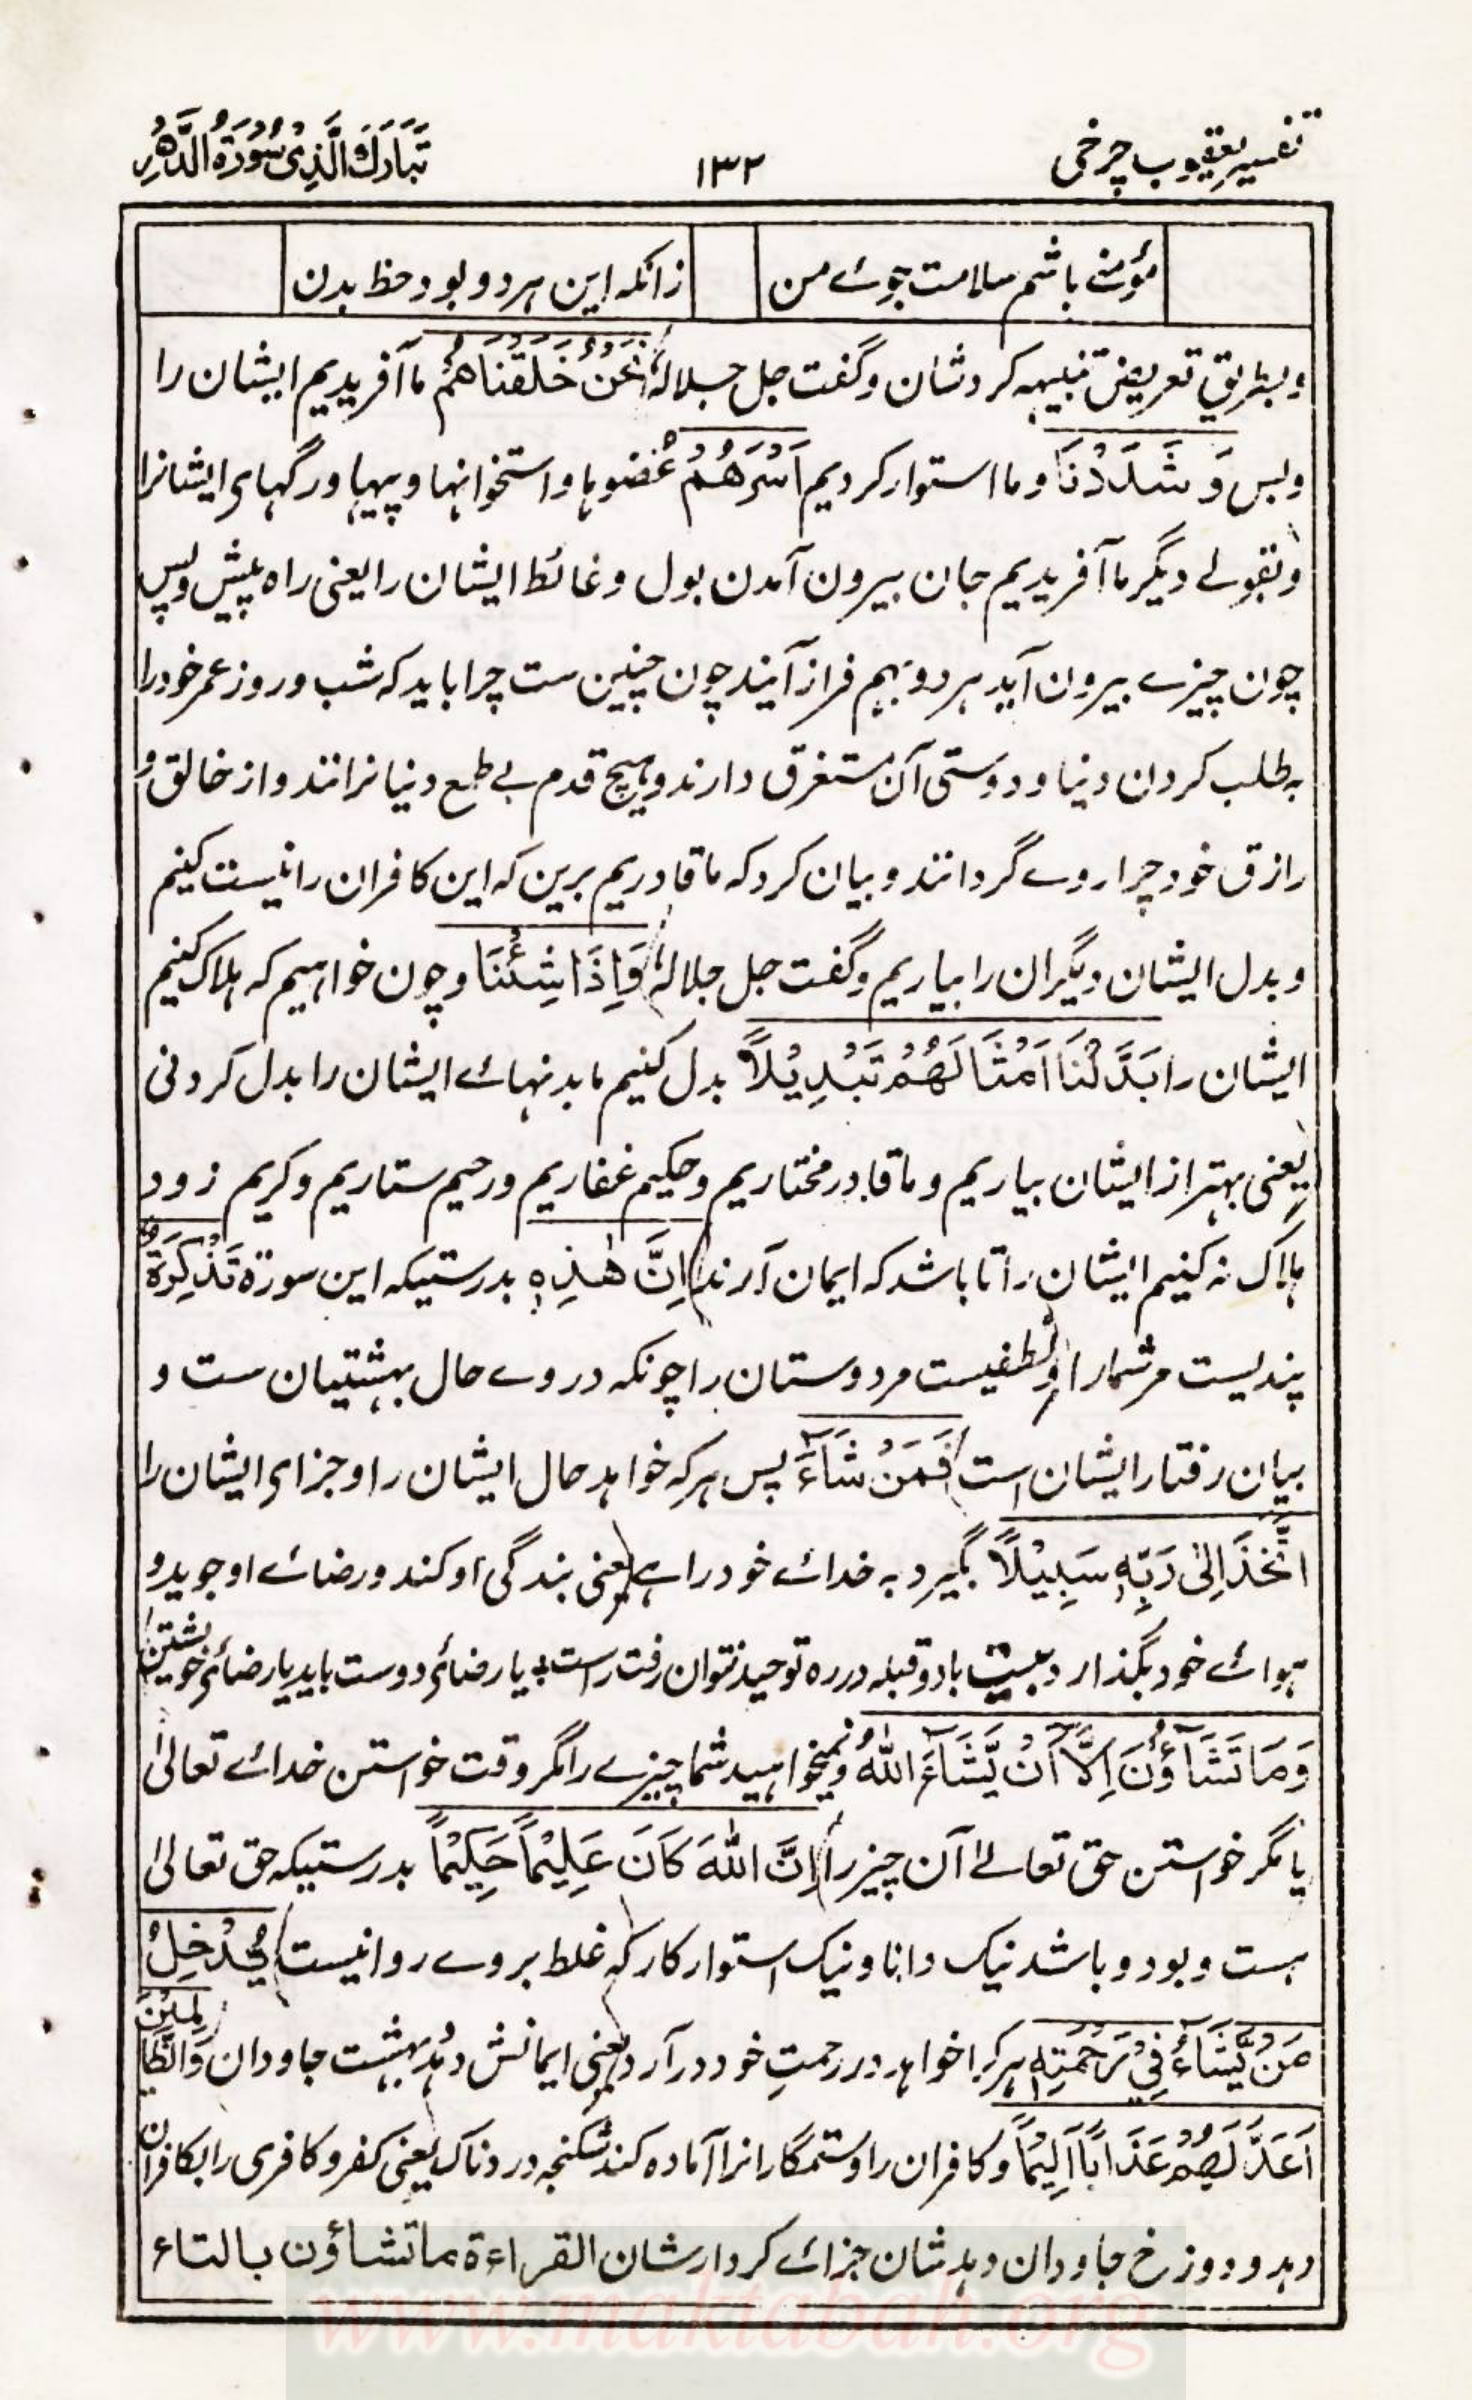 تفسیر یعقوب چرخی
۱۳۲
تَبَارَكَ الَّذِىْ سُوْرَةُ الدَّهْرِ
مؤمنے باشم سلامت جوئے من
زانکہ این ہر دو بود حظ بدن
و بطریق تعریض تنبیہہ کردشان و گفت جل جلالہٗ نَحْنُ خَلَقْنَاهُمْ ما آفریدیم ایشان را
و بس وَ شَدَدْنَا و ما استوار کردیم اَسْرَهُمْ عُضوہا و استخوانہا و پیہا و رگہای ایشانرا
و بقولے دیگر ما آفریدیم جان بیرون آمدن بول و غائط ایشان را یعنی راہ پیش و پس
چون چیزے بیرون آید ہر دو بہم فراز آیند چون چنین ست چرا باید کہ شب و روز عمر خود را
بہ طلب کردن دنیا و دوستی آن مستغرق دارند و ہیچ قدم بے طمع دنیا نرانند و از خالق و
رازق خود چرا روے گردانند و بیان کرد کہ ما قادریم برین کہ این کافران را نیست کنیم
و بدل ایشان دیگران را بیاریم و گفت جل جلالہٗ وَاِذَا شِئْنَا و چون خواہیم کہ ہلاک کنیم
ایشان را بَدَّلْنَا اَمْثَالَهُمْ تَبْدِیْلًا بدل کنیم ما بدنہائے ایشان را بدل کردنی
یعنی بہتر از ایشان بیاریم و ما قادر مختاریم و حکیم غفاریم و رحیم ستاریم و کریم زود
ہلاک نہ کنیم ایشان را تا باشد کہ ایمان آرند اِنَّ هٰذِهٖ بدرستیکہ این سورة تَذْکِرَةٌ
پندیست مر شمارا و لطفیست مر دوستان را چونکہ در وے حال بہشتیان ست و
بیان رفتار ایشان است فَمَنْ شَآءَ پس ہر کہ خواہد حال ایشان را و جزای ایشان را
اتَّخَذَ اِلٰی رَبِّهٖ سَبِیْلًا بگیرد بہ خدائے خود راہے یعنی بندگی او کند و رضائے او جوید و
ہوائے خود بگذارد بیت با دو قبلہ در رہ توحید نتوان رفت راست ٭ یا رضائی دوست باید یا رضائی خویشتن
وَمَا تَشَآءُوْنَ اِلَّا اَنْ یَّشَآءَ اللهُ و نمیخواہید شما چیزے را مگر وقت خواستن خدائے تعالیٰ
یا مگر خواستن حق تعالےٰ آن چیز را اِنَّ اللهَ کَانَ عَلِیْمًا حَکِیْمًا بدرستیکہ حق تعالیٰ
ہست و بود و باشد نیک دانا و نیک استوار کار کہ غلط بر وے روا نیست یُدْخِلُ
مَنْ یَّشَآءُ فِیْ رَحْمَتِهٖ ہر کرا خواہد در رحمتِ خود در آرد یعنی ایمانش دہد بہشت جاودان وَالظّٰلِمِیْنَ
اَعَدَّ لَهُمْ عَذَابًا اَلِیْمًا و کافران را و ستمگارانرا آمادہ کند شکنجہ دردناک یعنی کفر و کافری را بکافران
دہد و دوزخ جاودان دہد شان جزائے کردار شان القراءة ما تشاؤن بالتاء
www.maktabah.org